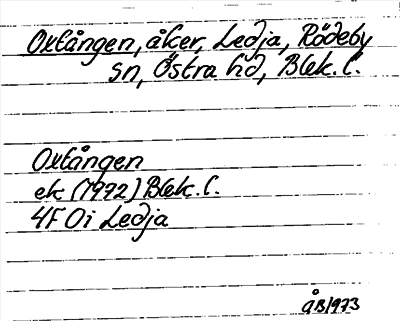 Oxtången, åker, Ledja, Rödeby
sn, Östra hd, Blek. l.
Oxtången
ek (1972) Blek. l.
4F 0i Ledja
ÅB 1973